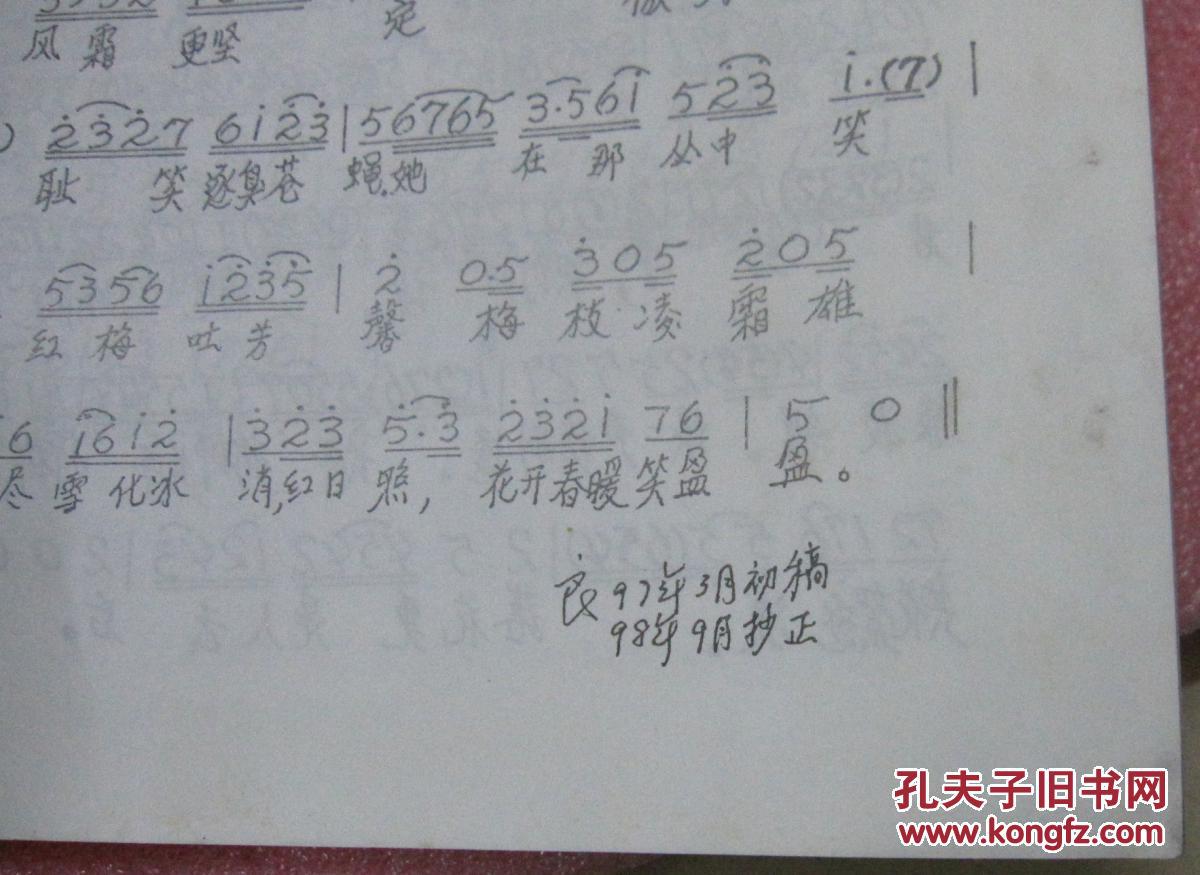 风霜 更坚 定
) 2̇3̇2̇7 6i2̇3̇ | 56765 3·56i 52̇3̇ i·(7) |
耻 笑逐臭苍 蝇,她 在 那 丛中 笑
5356 i2̇3̇5̇ | 2̇ 0·5 3̇05 2̇05 |
红梅 吐芳 馨 梅 枝 凌 霜 雄
6 i6i2̇ | 3̇2̇3̇ 5̇·3̇ 2̇3̇2̇i 76 | 5 0 ‖
尽 雪 化冰 消,红日 照, 花开春暖笑盈 盈。
良 97年3月初稿
98年9月抄正
孔夫子旧书网
www.kongfz.com